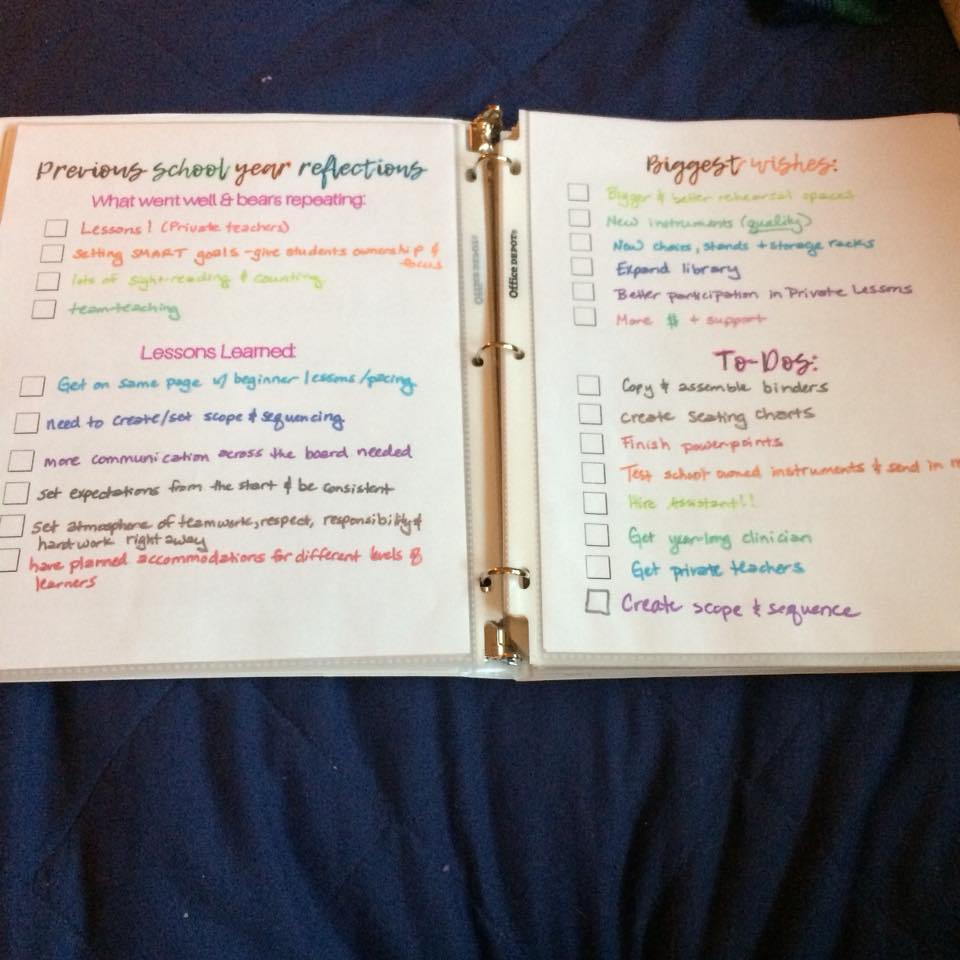 Previous school year reflections
What went well & bears repeating:
Lessons! (Private teachers)
Setting SMART goals - give students ownership &
focus
lots of sight-reading & counting
team-teaching
Lessons Learned:
Get on same page w/ beginner lessons/pacing
need to create/set scope & sequencing
more communication across the board needed
set expectations from the start & be consistent
Set atmosphere of teamwork, respect, responsibility &
hard work right away
have planned accommodations for different levels of
learners
Office DEPOT
Office DEPOT
Biggest wishes:
Bigger & better rehearsal spaces
New instruments (quality)
New chairs, stands + storage racks
Expand library
Better participation in Private Lessons
More $ + support
To-Dos:
Copy & assemble binders
create seating charts
Finish powerpoints
Test school owned instruments & send in
Hire Assistant!!
Get year-long clinician
Get private teachers
Create scope & sequence